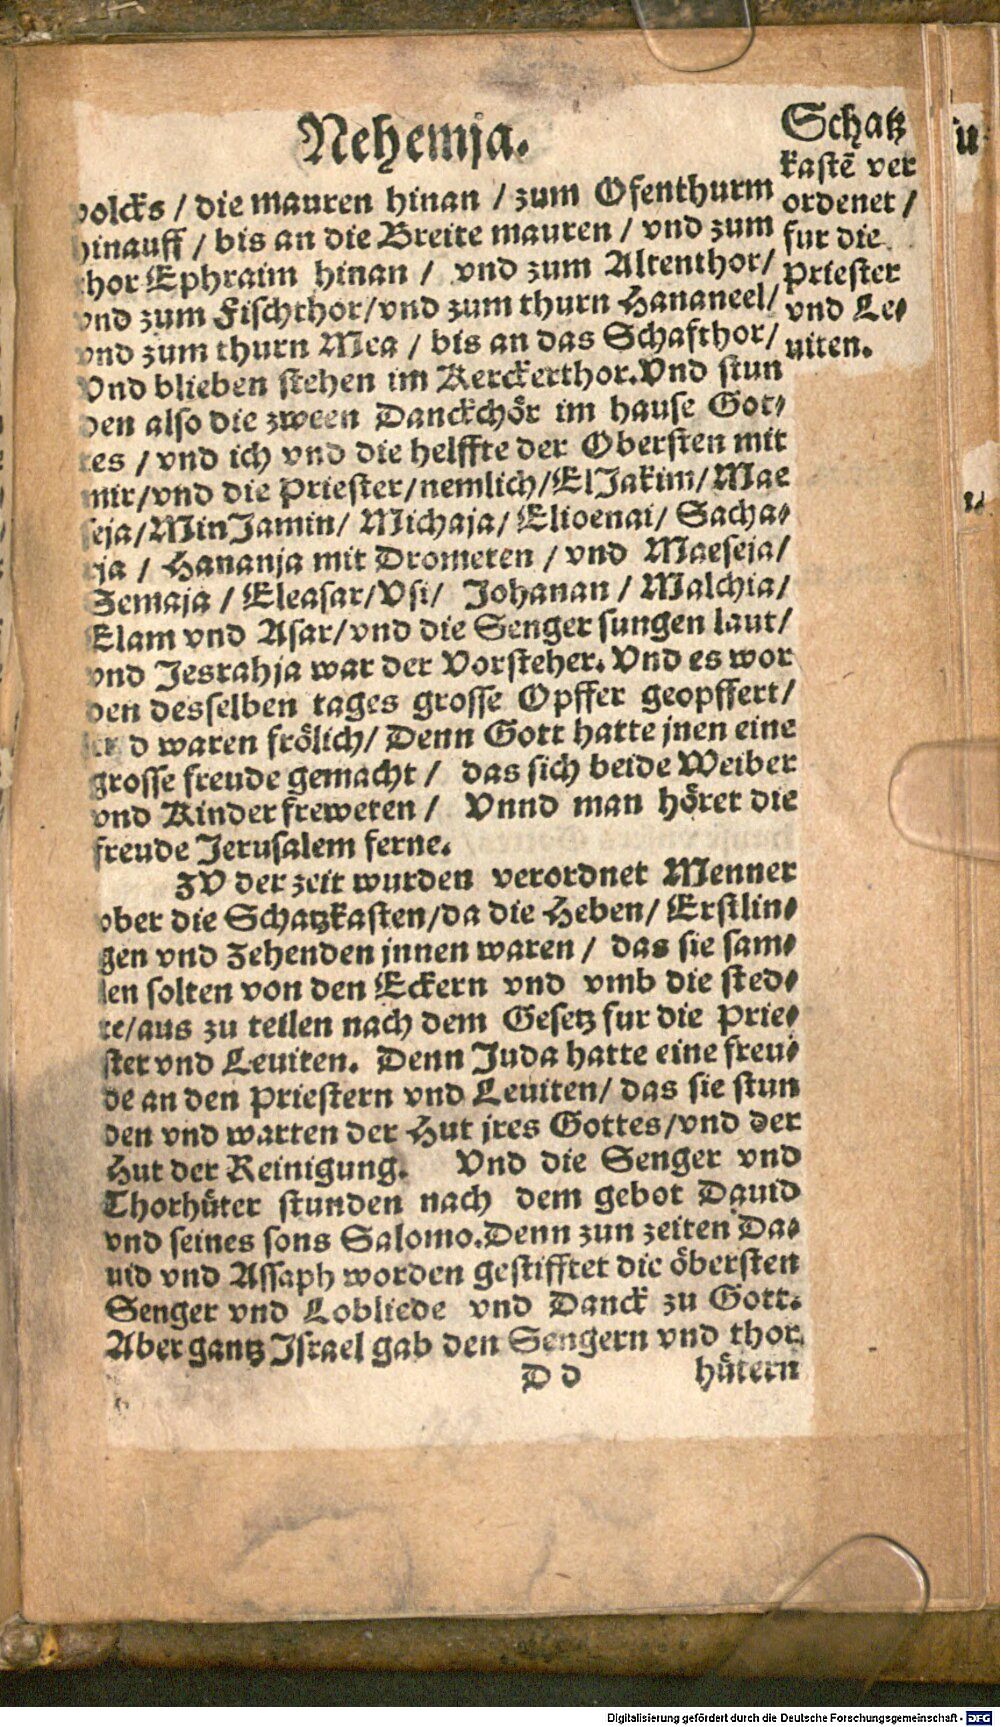 Nehemja.
Schatz
kastē ver
ordenet /
fur die
Priester
vnd Le⸗
uiten.
volcks / die mauren hinan / zum Ofenthurm
hinauff / bis an die Breite mauren / vnd zum
thor Ephraim hinan / vnd zum Altenthor/
vnd zum Fischthor/vnd zum thurn Hananeel/
vnd zum thurn Mea / bis an das Schafthor/
Vnd blieben stehen im Kerckerthor.Vnd stun
den also die zween Danckchör im hause Got⸗
tes / vnd ich vnd die helffte der Obersten mit
mir/vnd die Priester/nemlich/ElJakim/Mae
seja/MinJamin/ Michaja/ Elioenai/ Sacha⸗
rja / Hananja mit Drometen / vnd Maeseja/
Semaja / Eleasar/Vsi/ Johanan / Malchia/
Elam vnd Asar/vnd die Senger sungen laut/
vnd Jesrahja war der Vorsteher. Vnd es wor
den desselben tages grosse Opffer geopffert/
d waren frölich/ Denn Gott hatte jnen eine
grosse freude gemacht / das sich beide Weiber
vnd Kinder freweten / Vnnd man höret die
freude Jerusalem ferne.
ZV der zeit wurden verordnet Menner
vber die Schatzkasten/da die Heben/ Erstlin⸗
gen vnd Zehenden jnnen waren / das sie sam⸗
len solten von den Eckern vnd vmb die sted⸗
te/aus zu teilen nach dem Gesetz fur die Prie⸗
ster vnd Leuiten. Denn Juda hatte eine freu⸗
de an den Priestern vnd Leuiten/ das sie stun
den vnd warten der Hut jres Gottes/vnd der
Hut der Reinigung. Vnd die Senger vnd
Thorhüter stunden nach dem gebot Dauid
vnd seines sons Salomo.Denn zun zeiten Da⸗
uid vnd Assaph worden gestifftet die öbersten
Senger vnd Lobliede vnd Danck zu Gott.
Aber gantz Israel gab den Sengern vnd thor
D d hütern
Digitalisierung gefördert durch die Deutsche Forschungsgemeinschaft - DFG